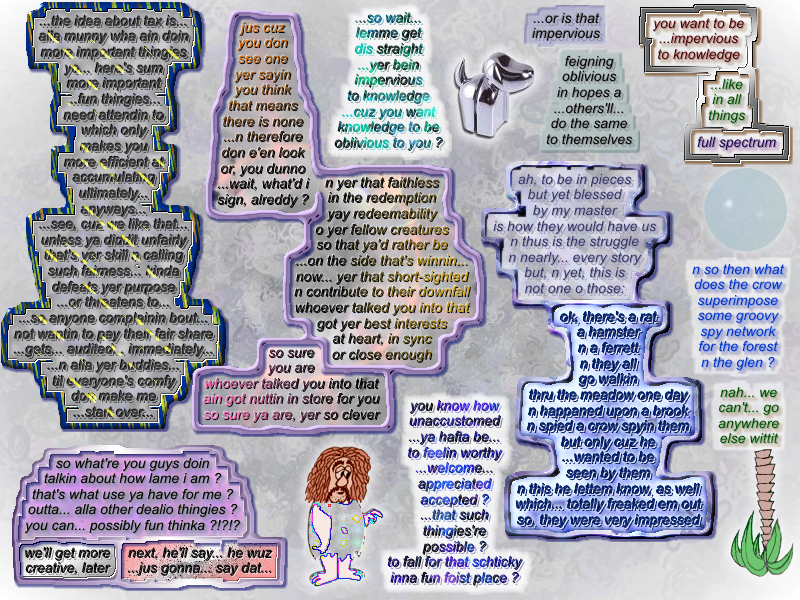 ...the idea about tax is...
alla munny wha ain doin
more important thingies
ya... here's sum
more important
...fun thingies...
need attendin to
which only
makes you
more efficient at
accumulating
ultimately...
anyways...
...see, cuz we like that...
unless ya did it unfairly
that's yer skill n calling
such fairness... kinda
defeats yer purpose
...or threatens to...
...so anyone complainin bout...
not wantin to pay their fair share
...gets... audited... immediately...
...n alla yer buddies...
til everyone's comfy
don make me
...start over...
jus cuz
you don
see one
yer sayin
you think
that means
there is none
...n therefore
don e'en look
or, you dunno
...wait, what'd i
sign, alreddy ?
...so wait...
lemme get
dis straight
...yer bein
impervious
to knowledge
...cuz you want
knowledge to be
oblivious to you ?
...or is that
impervious
feigning
oblivious
in hopes a
...others'll...
do the same
to themselves
you want to be
...impervious
to knowledge
...like
in all
things
full spectrum
n yer that faithless
in the redemption
yay redeemability
o yer fellow creatures
so that ya'd rather be
...on the side that's winnin...
now... yer that short-sighted
n contribute to their downfall
whoever talked you into that
got yer best interests
at heart, in sync
or close enough
so sure
you are
whoever talked you into that
ain got nuttin in store for you
so sure ya are, yer so clever
ah, to be in pieces
but yet blessed
by my master
is how they would have us
n thus is the struggle
n nearly... every story
but, n yet, this is
not one o those:
ok, there's a rat
a hamster
n a ferrett
n they all
go walkin
thru the meadow one day
n happaned upon a brook
n spied a crow spyin them
but only cuz he
...wanted to be
seen by them
n this he lettem know, as well
which... totally freaked em out
so, they were very impressed
n so then what
does the crow
superimpose
some groovy
spy network
for the forest
n the glen ?
nah... we
can't... go
anywhere
else wittit
you know how
unaccustomed
...ya hafta be...
to feelin worthy
...welcome...
appreciated
accepted ?
...that such
thingies're
possible ?
to fall for that schticky
inna fun foist place ?
so what're you guys doin
talkin about how lame i am ?
that's what use ya have for me ?
outta... alla other dealio thingies ?
you can... possibly fun thinka ?!?!?
we'll get more
creative, later
next, he'll say... he wuz
...jus gonna... say dat...